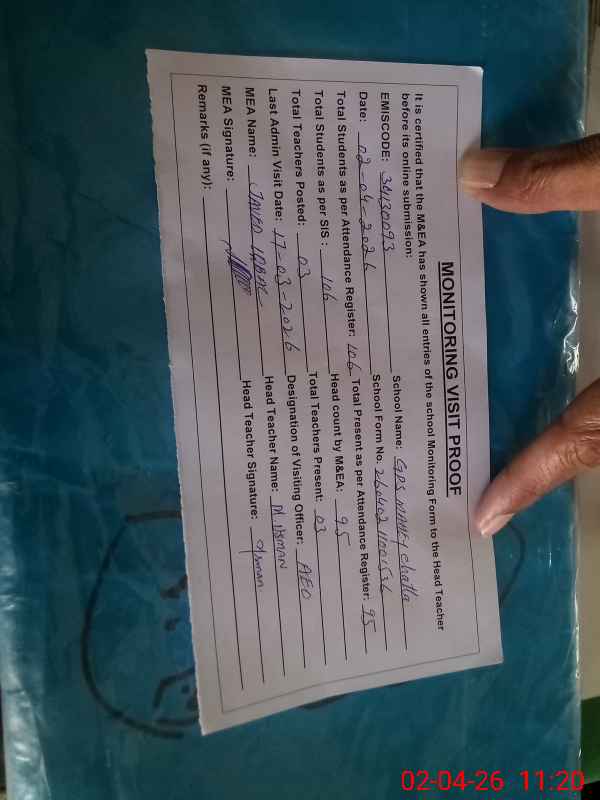 MONITORING VISIT PROOF
It is certified that the M&EA has shown all entries of the school Monitoring Form to the Head Teacher
before its online submission:
EMISCODE: 34130093 School Name: GPS Chatta
Date: 02-04-2026 School Form No.
Total Students as per Attendance Register: 106 Total Present as per Attendance Register: 95
Total Students as per SIS : 106 Head count by M&EA: 95
Total Teachers Posted: 03 Total Teachers Present: 03
Last Admin Visit Date: 17-03-2026 Designation of Visiting Officer: AEO
MEA Name: JAVED IQBAL Head Teacher Name: M. USMAN
MEA Signature: Head Teacher Signature: Usman
Remarks (if any):
02-04-26 11:20